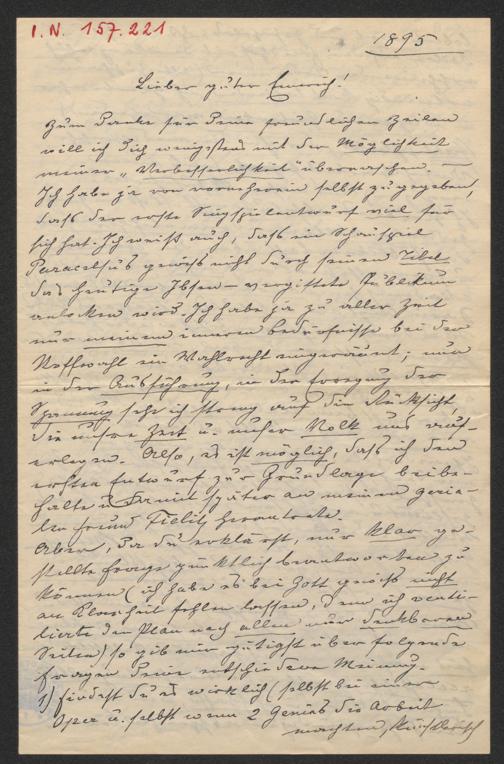 I. N. 157.221
1895
Lieber guter Emerich!
Zum Danke für Deine freundlichen Zeilen
will ich Dich wenigstens mit der Möglichkeit
meiner „Verbesserlichkeit" überraschen.
Ich habe ja von vorneherein selbst zugegeben,
dass der erste Singspielentwurf viel für
sich hat. Ich weiß auch, dass ein Schauspiel
Paracelsus gewiss nicht durch seinen Titel
das heutige Ibsen-vergiftete Publikum
anlocken wird. Ich habe ja zu aller Zeit
nur meinem inneren Bedürfnisse bei der
Stoffwahl ein Wahlrecht eingeräumt; nur
in der Ausführung, in der Erregung der
Spannung sehe ich streng auf die Rücksicht,
die unsre Zeit u. unser Volk uns auf-
erlegen. Also, es ist möglich, dass ich den
ersten Entwurf zur Grundlage beibe-
halte u. damit später an meinen genia-
len Freund Fielitz herantrete.
Aber, da du erklärst, nur klar ge-
stellte Frage pünktlich beantworten zu
können (ich habe es bei Gott gewiss nicht
an Klarheit fehlen lassen, denn ich venti-
lierte den Plan nach allen nur denkbaren
Seiten) so gib mir gütigst über folgende
Fragen Deine entschiedene Meinung.
1) Findest du es wirklich (selbst bei einer
Oper u. selbst wenn 2 Genies die Arbeit
machten,